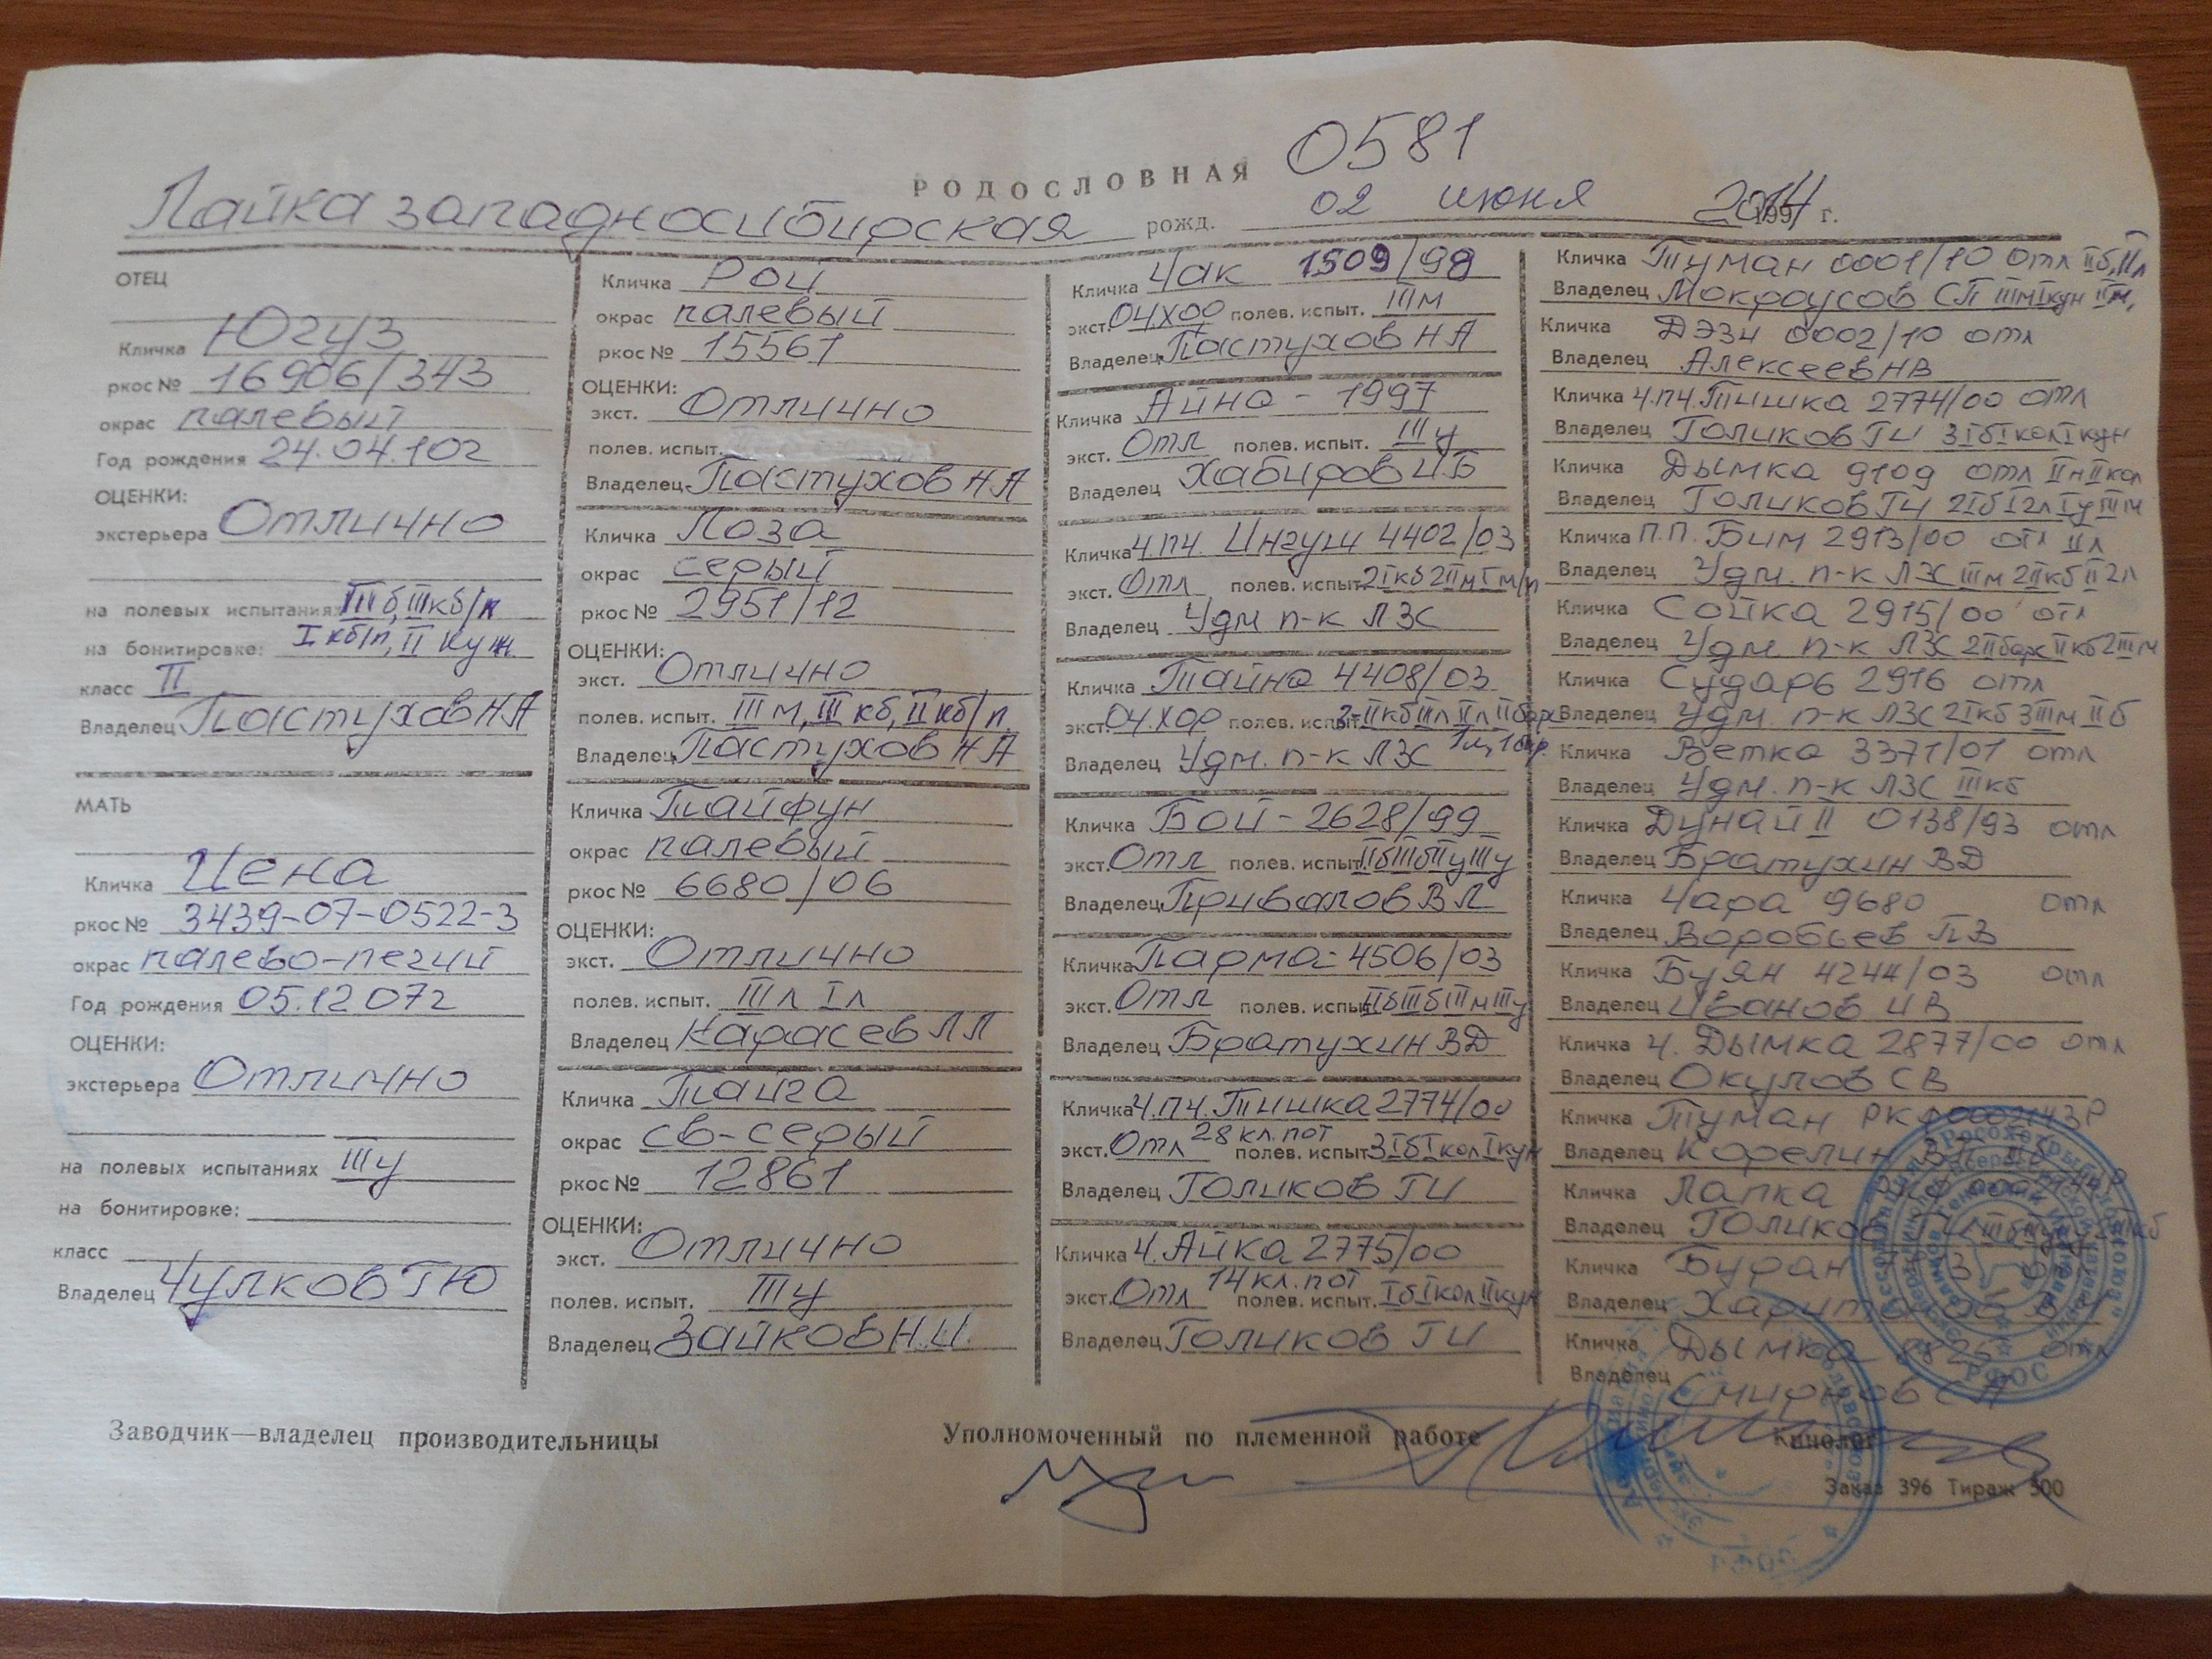 РОДОСЛОВНАЯ 0581
Лайка западносибирская рожд. 02 июня 2014 г.
ОТЕЦ
Кличка Югуз
ркос № 16906/343
окрас палевый
Год рождения 24.04.10г
ОЦЕНКИ:
экстерьера Отлично
на полевых испытаниях IIIб, IIIкб/п
на бонитировке: Iкб/п, II
класс II
Владелец Пастухов НА
МАТЬ
Кличка Цена
ркос № 3439-07-0522-3
окрас палево-пегий
Год рождения 05.12 07г
ОЦЕНКИ:
экстерьера Отлично
на полевых испытаниях IIIу
на бонитировке:
класс
Владелец Чулков ГЮ
Кличка Рой
окрас палевый
ркос № 15561
ОЦЕНКИ:
экст. Отлично
полев. испыт.
Владелец Пастухов НА
Кличка Лоза
окрас серый
ркос № 2951/12
ОЦЕНКИ:
экст. Отлично
полев. испыт. IIIм, III кб, II кб/п
Владелец Пастухов НА
Кличка Тайфун
окрас палевый
ркос № 6680/06
ОЦЕНКИ:
экст. Отлично
полев. испыт. IIIл Iл
Владелец Карасев ЛЛ
Кличка Тайга
окрас св-серый
ркос № 12861
ОЦЕНКИ:
экст. Отлично
полев. испыт. IIIу
Владелец Зайков Н.И.
Кличка Чак 1509/98
экст. ОЧХОО полев. испыт. IIIм
Владелец Пастухов НА
Кличка Айна - 1997
экст. Отл полев. испыт. IIIу
Владелец Хабиров И.Б
Кличка Ч.ПЧ. Ингуш 4402/03
экст. Отл полев. испыт. 2Iкб 2IIм Iм/п
Владелец Удм п-к ЛЗС
Кличка Тайна 4408/03
экст. ОЧ.ХОР полев. испыт.
Владелец Удм. п-к ЛЗС
Кличка Бой - 2628/99
экст. Отл полев. испыт. IIбIIIбIIуIIIу
Владелец Привалов ВЛ
Кличка Парма - 4506/03
экст. Отл полев. испыт. IIбIIIбIIIмIIIу
Владелец Братухин ВД
Кличка Ч.ПЧ. Тишка 2774/00
экст. Отл 28 кл. пот полев. испыт. 3IбIколIкун
Владелец Голиков ГИ
Кличка Ч. Айка 2775/00
экст. Отл 14 кл. пот полев. испыт. IбIколIIкун
Владелец Голиков ГИ
Кличка Туман 0001/10 Отл IIб, IIл
Владелец Мокроусов СП IIIмIкун
Кличка Дэзи 0002/10 отл
Владелец Алексеев НВ
Кличка Ч.ПЧ. Тишка 2774/00 отл
Владелец Голиков ГИ 3IбIколIкун
Кличка Дымка 9109 отл IIнIIкол
Владелец Голиков ГИ 2IбI2лIуIIIм
Кличка П.П. Бим 2913/00 отл IIл
Владелец Удм. п-к ЛЗС IIIм 2IIкб II2л
Кличка Сойка 2915/00 отл
Владелец Удм. п-к ЛЗС 2IIбарсIIкб2IIIм
Кличка Сударь 2916 отл
Владелец Удм. п-к ЛЗС 2Iкб 3IIIм IIб
Кличка Ветка 3371/01 отл
Владелец Удм. п-к ЛЗС IIIкб
Кличка Дунай II 0138/93 отл
Владелец Братухин ВД
Кличка Чара 9680 отл
Владелец Воробьев ПВ
Кличка Буян 4244/03 отл
Владелец Иванов ИВ
Кличка Ч. Дымка 2877/00 отл
Владелец Окулов СВ
Кличка Туман
Владелец Корелин
Кличка Лапка
Владелец Голиков
Кличка Буран
Владелец Харитонов
Кличка Дымка 8825 отл
Владелец Смирнов СА
Заводчик—владелец производительницы
Уполномоченный по племенной работе
Кинолог
Заказ 396 Тираж 500
РФОС